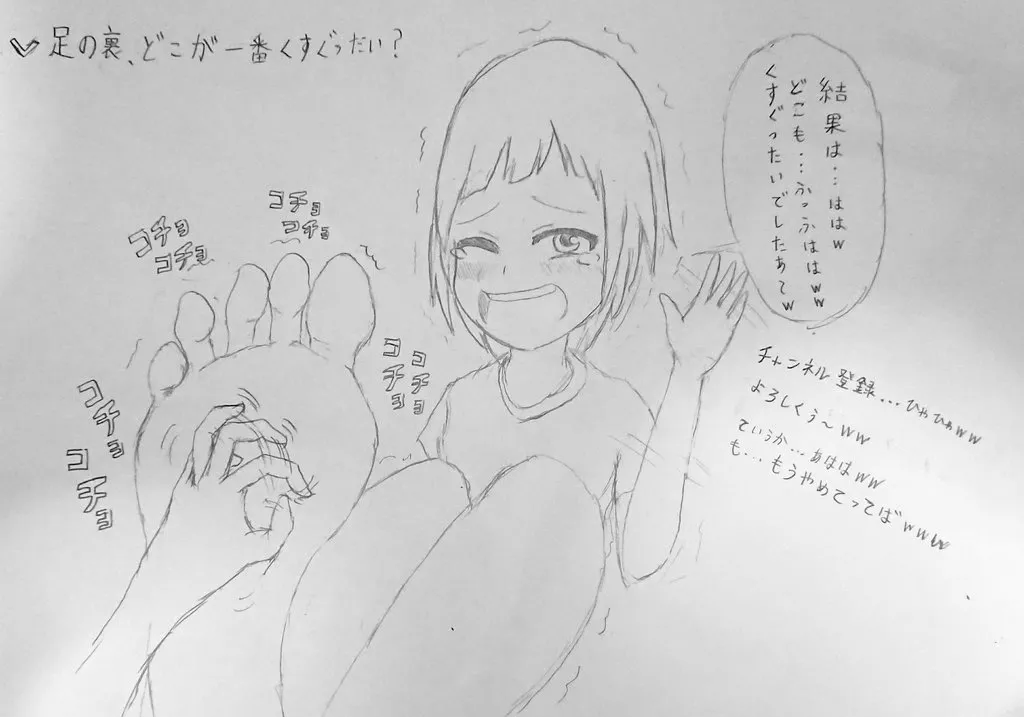 足の裏、どこが一番くすぐったい?
結果は…ははw
どこも…ふっふははww
くすぐったいでしたあてw
コチョ
コチョ
コチョ
コチョ
コチョ
コチョ
コチョ
コチョ
チャンネル登録…ひゃひゃww
よろしくぅ〜ww
ていうか…あははww
も…もうやめてってばwww